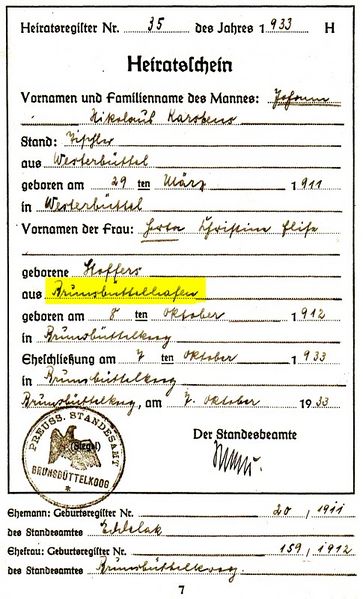 Heiratsregister Nr. 35 des Jahres 1933 H
Heiratsschein
Vornamen und Familienname des Mannes: Johann
Nikolaus Karstens
Stand: Tischler
aus Westerbüttel
geboren am 29 ten März 1911
in Westerbüttel
Vornamen der Frau: Herta Christina Elise
geborene Stoffers
aus Brunsbüttelhafen
geboren am 8 ten Oktober 1912
in Brunsbüttelkoog
Eheschließung am 7 ten Oktober 1933
in Brunsbüttelkoog
Brunsbüttelkoog, am 7. Oktober 1933
PREUSS. STANDESAMT
(Siegel)
BRUNSBÜTTELKOOG
Der Standesbeamte
Ehemann: Geburtsregister Nr. 20, 1911
des Standesamtes Eddelak
Ehefrau: Geburtsregister Nr. 159, 1912
des Standesamtes Brunsbüttelkoog.
7